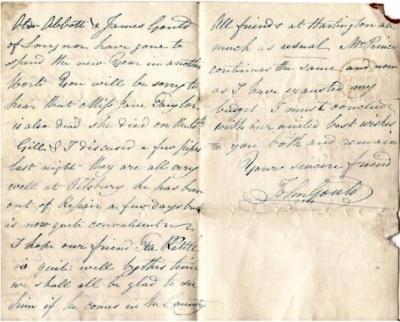 Abbott & James Gould
of Longnor have gone to
spend the new Year in another
World You will be sorry to
hear that Miss Jane Taylor
is also dead she died on the
Gill & I discused a few pipes
last night they are all very
well at Pilsbury he has been
out of Repair a few days but
is now quite convalesent
I hope our friend Kettle
is quite well by this time
we shall all be glad to see
him if he comes in the County
All friends at Hartington are
much as usual Mrs Prince
continues the same and now
as I have exausted my
budget I must conclude
with our united best wishes
to you both and remain
Yours sincere friend
John Gould